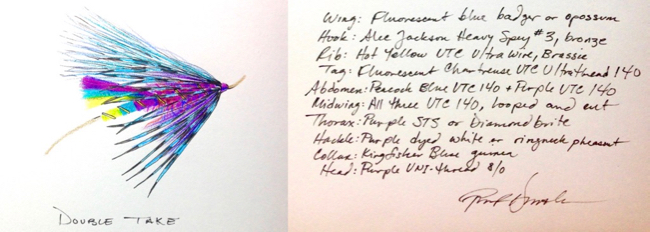 DOUBLE TAKE
Wing: Fluorescent blue badger or opossum
Hook: Alec Jackson Heavy Spey #3, bronze
Rib: Hot Yellow UTC Ultra Wire, Brassie
Tag: Fluorescent Chartreuse UTC Ultrathread 140
Abdomen: Peacock Blue UTC 140 + Purple UTC 140
Midwing: All three UTC 140, looped and cut
Thorax: Purple STS or Diamond brite
Hackle: Purple dyed white or ringneck pheasant
Collar: Kingfisher Blue guinea
Head: Purple UNI-thread 8/0